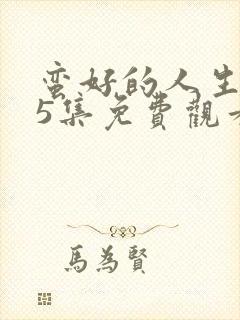 蛮好的人生
5集免費觀
馬為賢